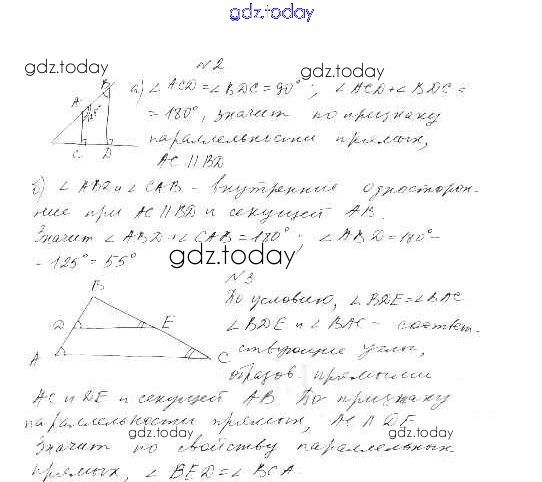 gdz.today
N2
gdz.today
gdz.today
а) ∠ACD = ∠BDC = 90°; ∠ACD + ∠BDC =
= 180°, значит по признаку
параллельности прямых,
AC || BD
B
A
125°
C D
б) ∠ABD и ∠CAB – внутренние односторон-
ние при AC || BD и секущей AB.
Значит ∠ABD + ∠CAB = 180°; ∠ABD = 180° –
- 125° = 55°
gdz.today
N3
B
D E
A C
По условию, ∠BDE = ∠BAC
∠BDE и ∠BAC – соответ-
ствующие углы,
образов. прямыми
AC и DE и секущей AB. По признаку
параллельности прямых, AC || DE
gdz.today
gdz.today
Значит по свойству параллельных
прямых, ∠BED = ∠BCA.